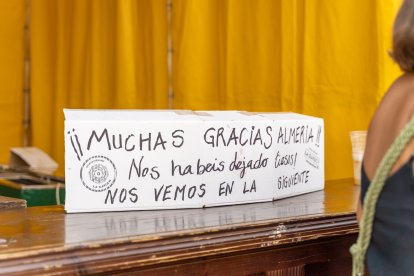 ¡¡MUCHAS GRACIAS ALMERÍA!!
Nos habeis dejado tiesos!
NOS VEMOS EN LA SIGUIENTE